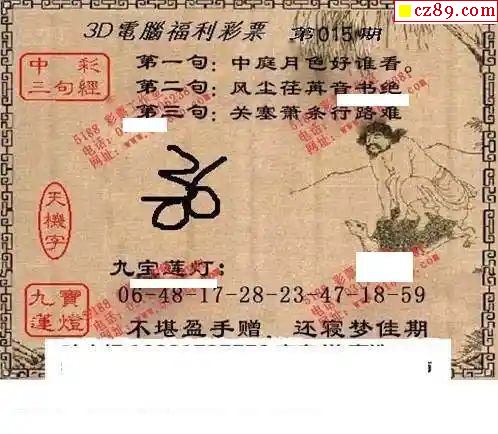 cz89.com
3D電腦福利彩票 第015期
中彩
三句經
第一句：中庭月色好谁看。
第二句：风尘荏苒音书绝
第三句：关塞萧条行路难
天機字
九宝莲灯：
九寶
蓮燈
06-48-17-28-23-47-18-59
不堪盈手赠，还寝梦佳期